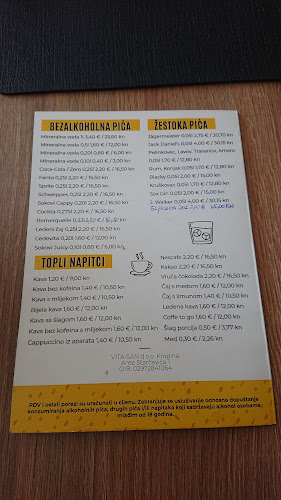 BEZALKOHOLNA PIĆA
Mineralna voda 1l 3,40 € / 25,60 kn
Mineralna voda 0,5l 1,60 € / 12,00 kn
Mineralna voda 0,20l 0,80 € / 6,00 kn
Mineralna voda 0,10l 0,40 € / 3,00 kn
Coca-Cola / Zero 0,25l 2,20 € / 16,50 kn
Fanta 0,25l 2,20 € / 16,50 kn
Sprite 0,25l 2,20 € / 16,50 kn
Schweppes 0,25l 2,20 € / 16,50 kn
Sokovi Cappy 0,20l 2,20 € / 16,50 kn
Cockta 0,275l 2,20 € / 16,50 kn
Romerquelle 0,33l
Ledeni čaj 0,25l 2,20 € / 16,50 kn
Cedevita 0,20l 1,60 € / 12,00 kn
Sokovi Juicy 0,10l 0,80 € / 6,00 kn
ŽESTOKA PIĆA
Jägermeister 0,05l 2,70 € / 20,30 kn
Jack Daniel's 0,03l 4,00 € / 30,15 kn
Pelinkovec, Lavov, Travarica, Amaro
0,03l 1,70 € / 12,80 kn
Rum, Konjak 0,03l 1,70 € / 12,80 kn
Blacky 0,05l 2,00 € / 15,00 kn
Kruškovac 0,03l 1,70 € / 12,80 kn
Sax Gin 0,05l 2,00 € / 15,00 kn
J. Walker 0,03l 4,00 € / 30,15 kn
TOPLI NAPITCI
Kava 1,20 € / 9,00 kn
Kava bez kofeina 1,40 € / 10,50 kn
Kava s mlijekom 1,40 € / 10,50 kn
Bijela kava 1,60 € / 12,00 kn
Kava sa šlagom 1,60 € / 12,00 kn
Kava bez kofeina s mlijekom 1,60 € / 12,00 kn
Cappuccino iz aparata 1,40 € / 10,50 kn
Nescafe 2,20 € / 16,50 kn
Kakao 2,20 € / 16,50 kn
Vruća čokolada 2,20 € / 16,50 kn
Čaj s medom 1,60 € / 12,00 kn
Čaj s limunom 1,40 € / 10,50 kn
Ledena kava 1,60 € / 12,00 kn
Coffe to go 1,60 € / 12,00 kn
Šlag porcija 0,50 € / 3,77 kn
Med 0,30 € / 2,26 kn
VITA-SAN d.o.o. Krapina
Ante Starčevića 1
OIB: 02972841064
PDV i ostali porezi su uračunati u cijenu. Zabranjuje se usluživanje odnosno dopuštanje
konzumiranja alkoholnih pića, drugih pića i/ili napitaka koji sadržavaju alkohol osobama,
mlađim od 18 godina.